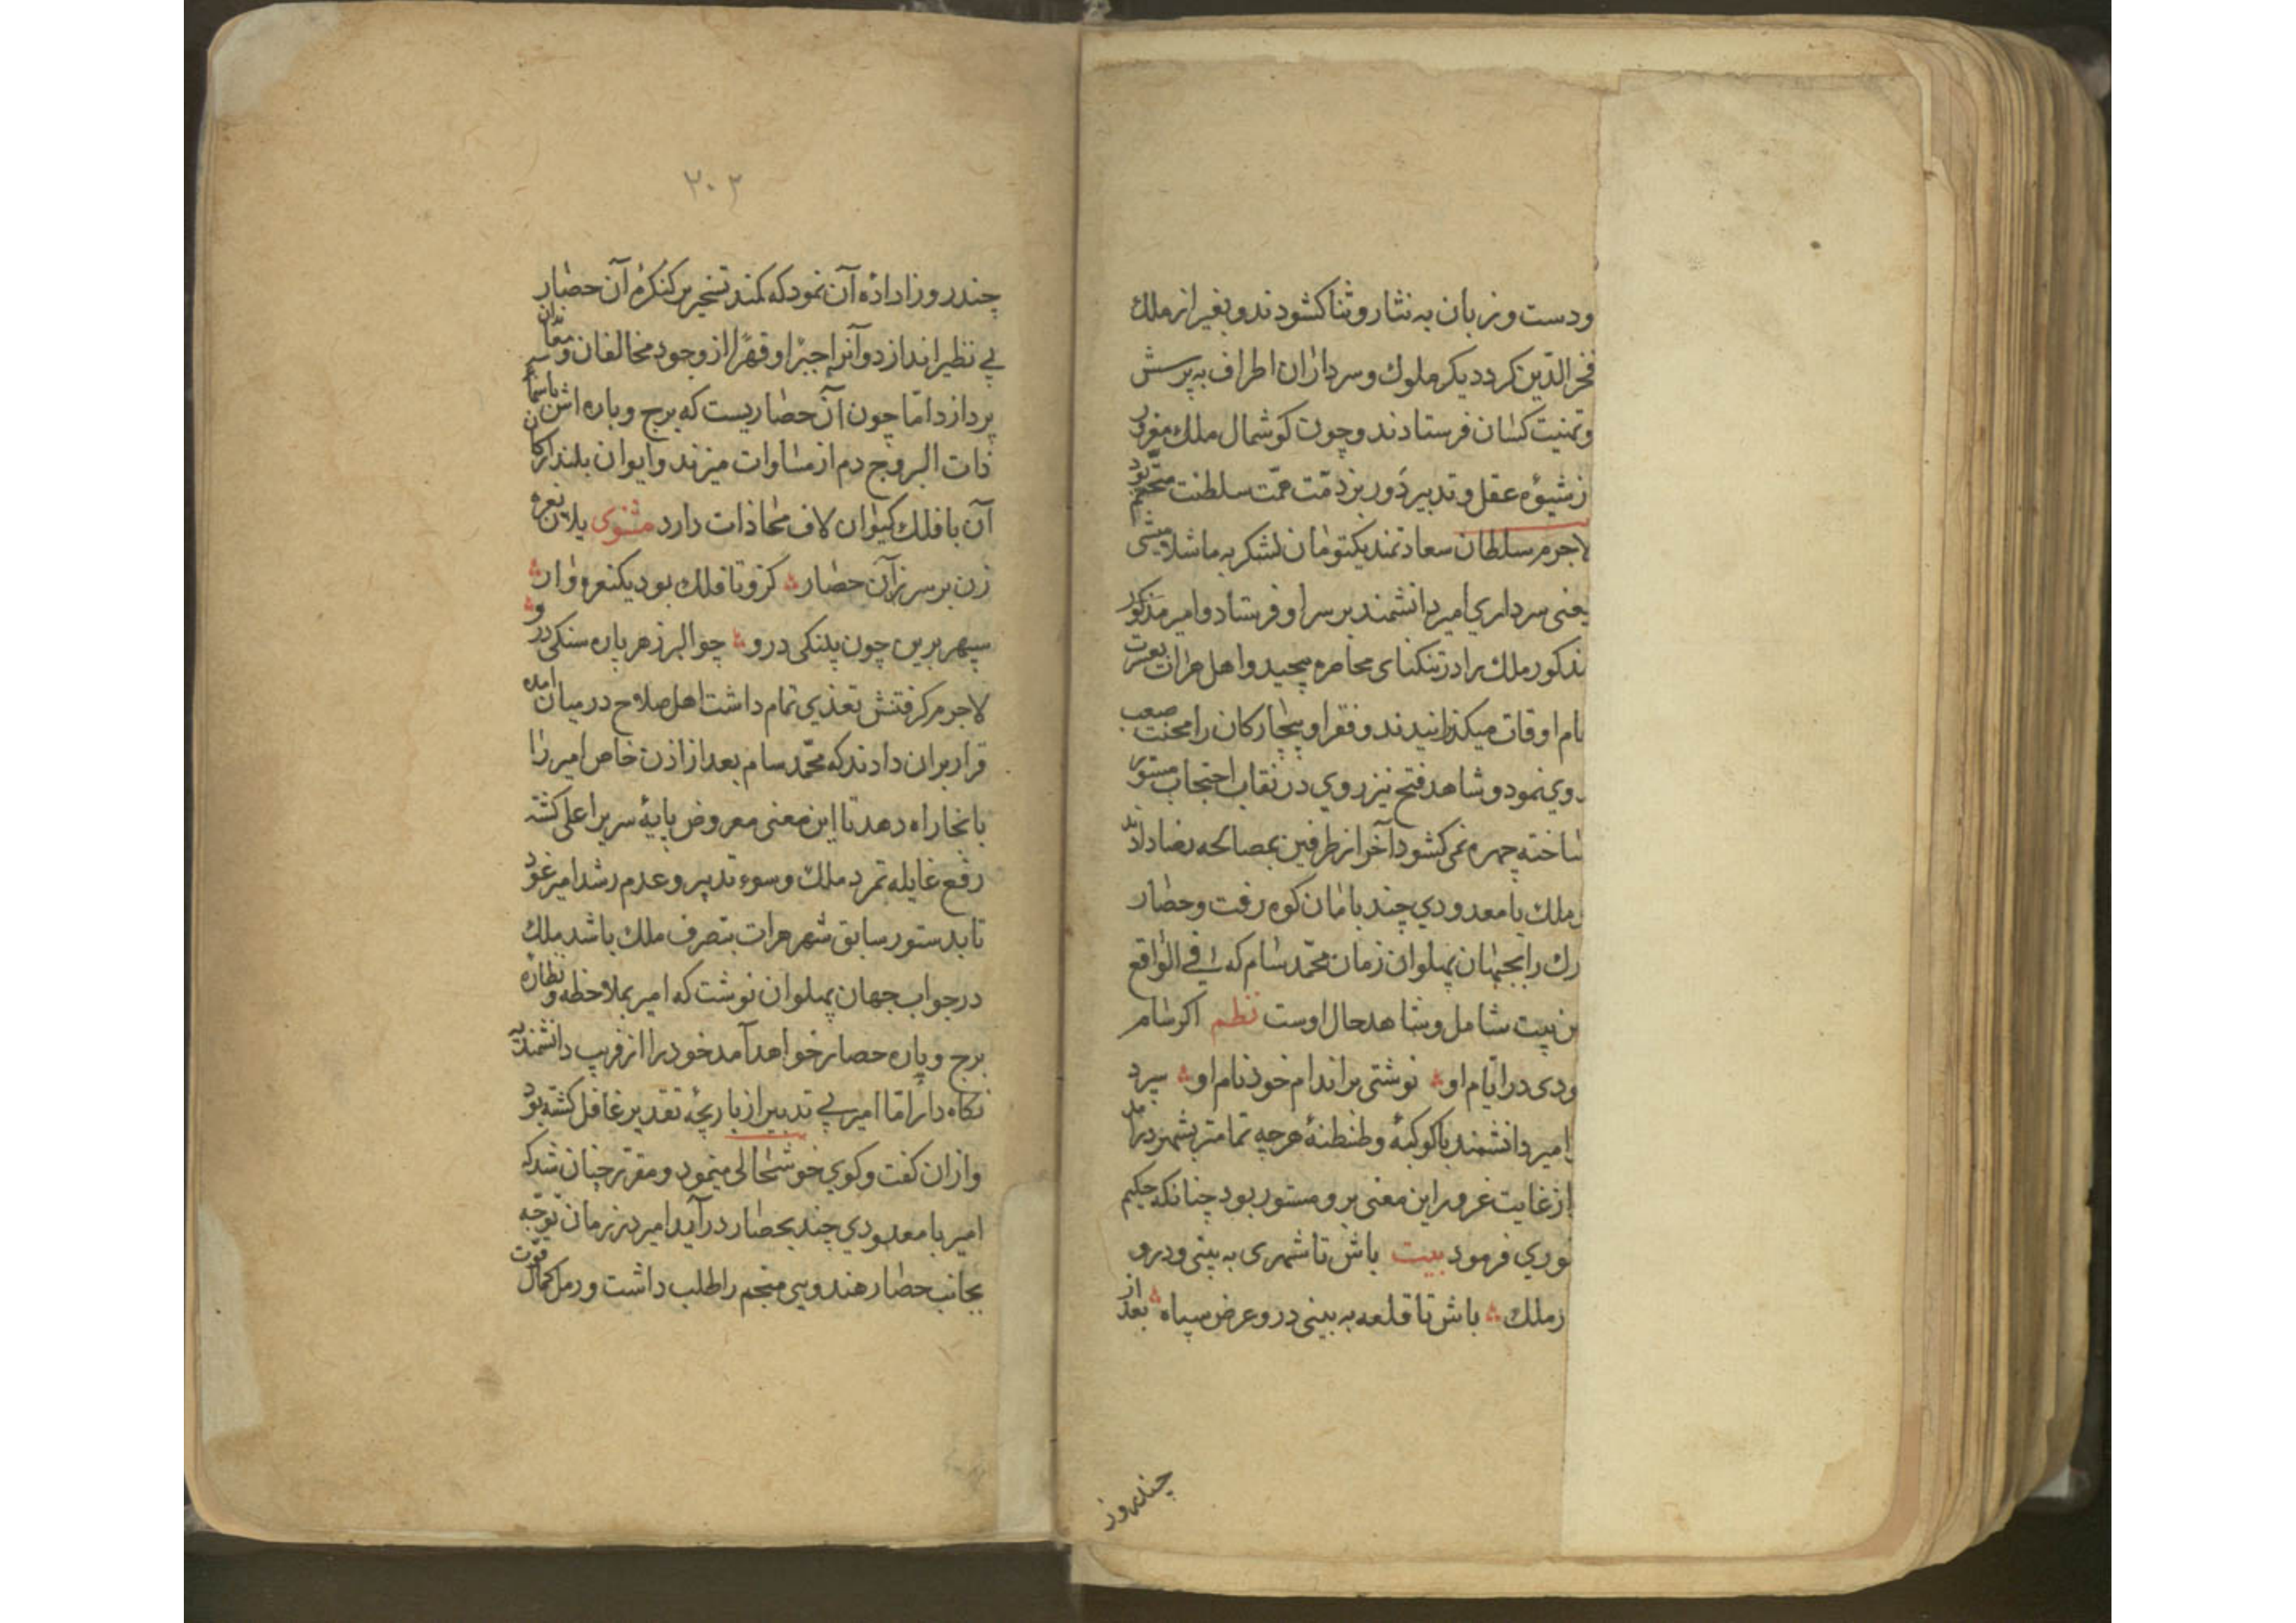 ودست و زبان به نثار و ثنا کشودند و بغیر از ملك
فخر الدّین کرد دیکر ملوك و سرداران اطراف به پرسش
و تهنیت کسان فرستادند و چون کوشمال ملك مغرور
ز شیوه عقل و تدبیر دور بر ذمّت همّت سلطنت متحتّم بود
لاجرم سلطان سعادتمند یکتومان لشکر به باشلامیشی
یعنی سرداری امیر دانشمند بر سر او فرستاد و امیر مذکور
مذکور ملك را در تنکنای محاصره پیچید و اهل هرات بعسرت
تمام اوقات میکذرانیدند و فقرا و بیچارکان را محنت صعب
روی نمود و شاهد فتح نیز روی در نقاب احتجاب مستور
ساخته چهره نمی کشود آخر از طرفین بمصالحه رضا دادند
ملك با معدودی چند بامان کوه رفت و حصار
رك را بجهان پهلوان زمان محمّد سام که فی الواقع
ن بیت شامل و شاهد حال اوست نظم اکر سام
ودی در ایّام او نوشتی بر اندام خود نام او سپرد
امیر دانشمند با کوکبهٔ و طنطنهٔ هرچه تمامتر بشهر درآمد
از غایت غرور این معنی برو مستور بود چنانکه حکیم
نوری فرمود بیت باش تا شهری به بینی و درو
ز ملك باش تا قلعه به بینی درو عرض سپاه بعد از
چند روز
۳۰۲
چند روز ارادهٔ آن نمود که کمند تسخیر بر کنکرهٔ آن حصار
بی نظیر اندازد و آنرا جبرًا و قهرًا از وجود مخالفان و معاندان
پردازد امّا چون آن حصاریست که برج و باره اش باسمان
ذات البروج دم از مساوات میزند و ایوان بلند ارکان
آن با فلك کیوان لاف محاذات دارد مثنوی یلان نعره
زن بر سرز آن حصار کزو تا فلك بود یکنعره وار
سپهر برین چون پلنکی درو چو البرز هر پاره سنکی درو
لاجرم کرفتنش تعذری تمام داشت اهل صلاح در میان آمده
قرار بران دادند که محمّد سام بعد از اذن خاص امیر را
بانجا راه دهد تا این معنی معروض پایهٔ سریر اعلی کشته
رفع غایله تمرد ملك و سوء تدبیر و عدم رشد امیر غود
تا بدستور سابق شهر هرات بتصرف ملك باشد ملك
در جواب جهان پهلوان نوشت که امیر بملاحظه و نظاره
برج و باره حصار خواهد آمد خود را از فریب دانشمندیه
نکاه دار امّا امیر بی تدبیر از بازیچه تقدیر غافل کشته بود
و ازان کفت و کوی خوشحالی مینمود و مقرّر چنان شد که
امیر با معدودی چند بحصار درآید امیر در زمان توجّه
بجانب حصار هندویی منجم را طلب داشت و رمل کمال قوّت